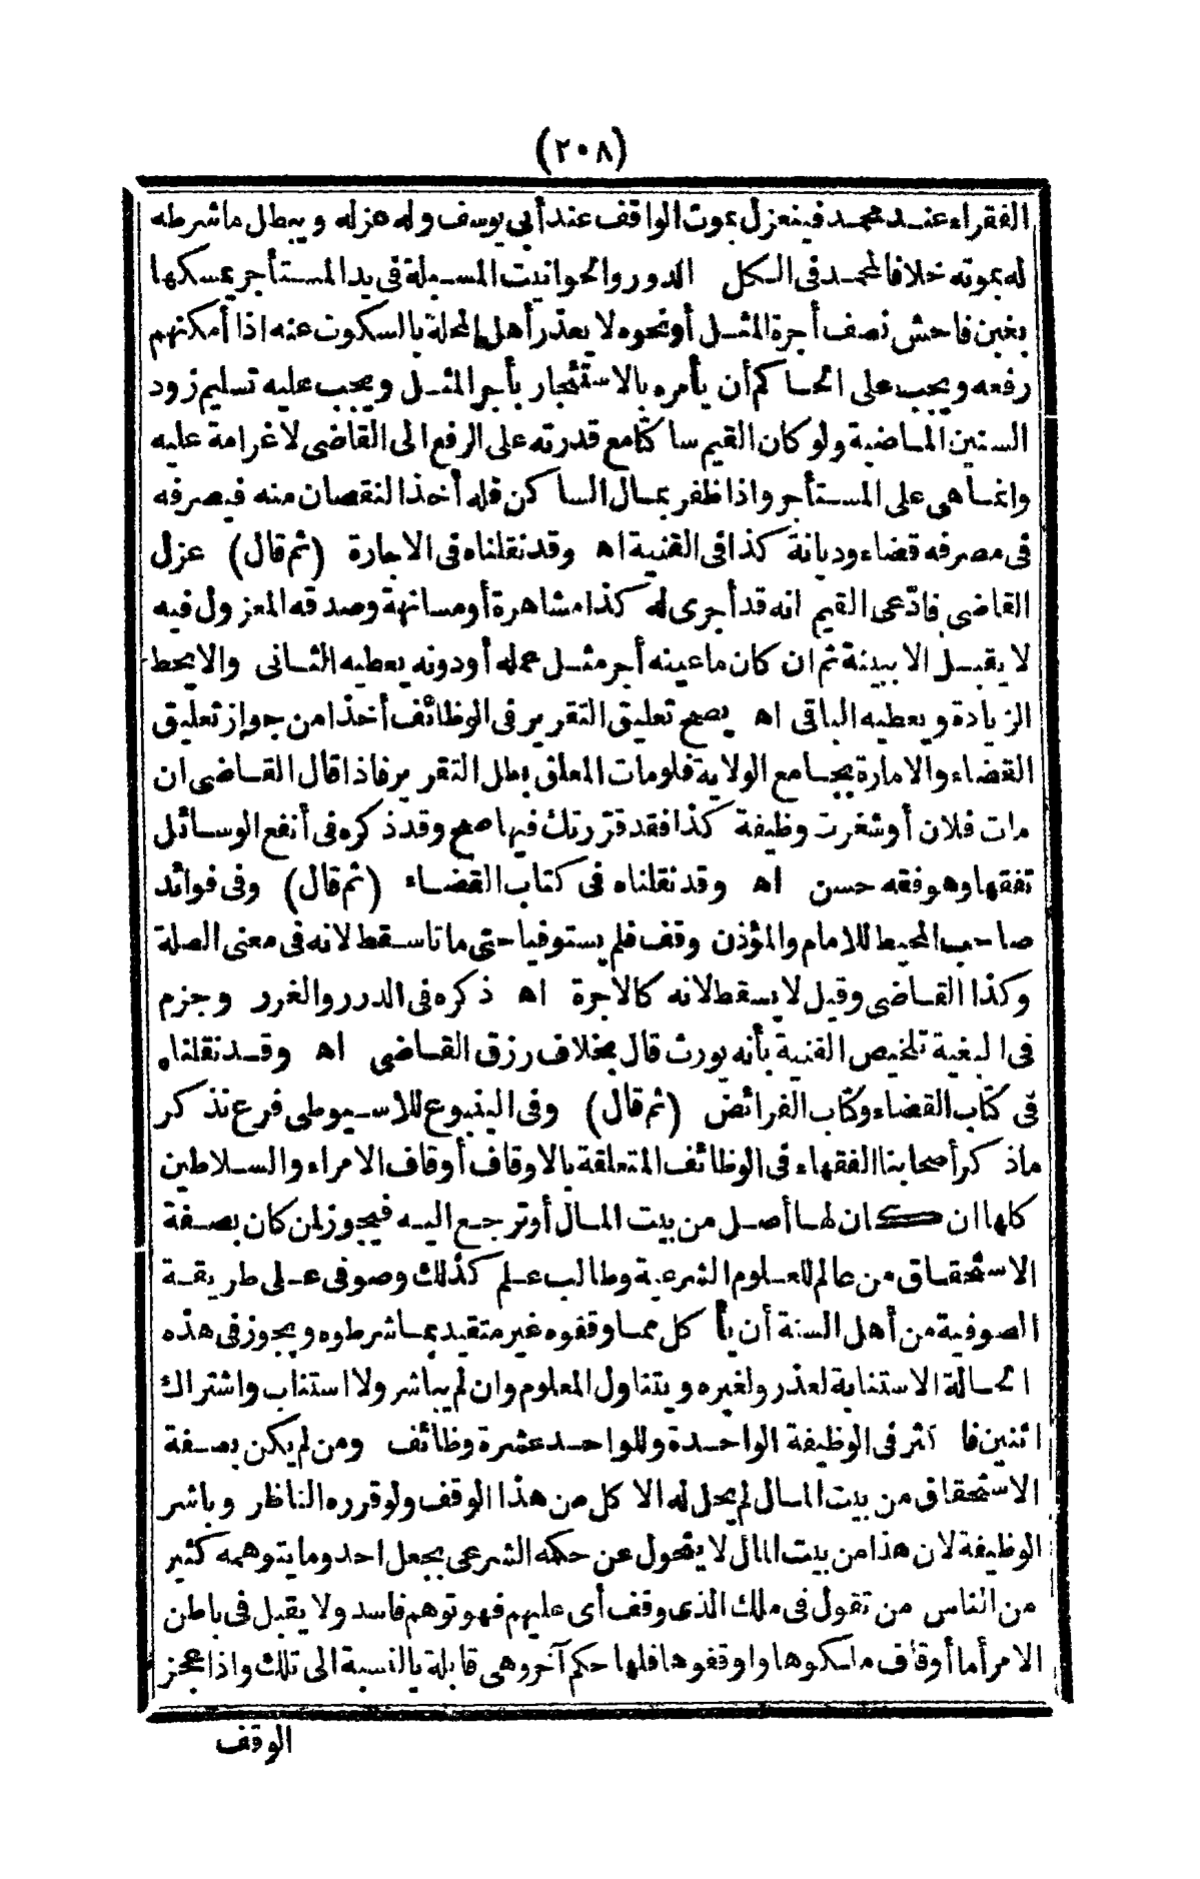 (٢٠٨)
الفقراء عند محمد فينعزل بموت الواقف عند أبي يوسف وله عزله ويبطل ماشرطه
له بموته خلافا لمحمد فى الكل الدور والحوانيت المسبلة فى يد المستأجر يمسكها
بغبن فاحش نصف أجرة المثل أو نحوه لا يعذر أهل المحلة بالسكوت عنه اذا أمكنهم
رفعه ويجب على الحاكم أن يأمره بالاستئجار بأجر المثل ويجب عليه تسليم زود
السنين الماضية ولو كان القيم ساكتا مع قدرته على الرفع الى القاضى لا غرامة عليه
وانما هى على المستأجر واذا ظفر بمال الساكن فله أخذ النقصان منه فيصرفه
فى مصرفه قضاء وديانة كذا فى القنية اه وقد نقلناه فى الاجارة (ثم قال) عزل
القاضى فادّعى القيم انه قد أجرى له كذا مشاهرة أو مسانهة وصدقه المعزول فيه
لا يقبل الا ببينة ثم ان كان ما عينه أجر مثل عمله أو دونه يعطيه الثانى والا يحط
الزيادة ويعطيه الباقى اه يصح تعليق التقرير فى الوظائف أخذا من جواز تعليق
القضاء والامارة بجامع الولاية فلو مات المعلق بطل التقرير فاذا قال القاضى ان
مات فلان أو شغرت وظيفة كذا فقد قرّرتك فيها صح وقد ذكره فى أنفع الوسائل
تفقها وهو فقه حسن اه وقد نقلناه فى كتاب القضاء (ثم قال) وفى فوائد
صاحب المحيط للامام والمؤذن وقف فلم يستوفيا حتى ماتا سقط لانه فى معنى الصلة
وكذا القاضى وقيل لا يسقط لانه كالاجرة اه ذكره فى الدرر والغرر وجزم
فى البغية تلخيص القنية بأنه يورث قال بخلاف رزق القاضى اه وقد نقلناه
فى كتاب القضاء وكتاب الفرائض (ثم قال) وفى الينبوع للاسيوطى فرع نذكر
ماذكر أصحابنا الفقهاء فى الوظائف المتعلقة بالاوقاف أوقاف الامراء والسلاطين
كلها ان كان لها أصل من بيت المال أو ترجع اليه فيجوز لمن كان بصفة
الاستحقاق من عالم للعلوم الشرعية وطالب علم كذلك وصوفى على طريقة
الصوفية من أهل السنة أن يأكل مما وقفوه غير متقيد بما شرطوه ويجوز فى هذه
الحالة الاستنابة لعذر ولغيره ويتناول المعلوم وان لم يباشر ولا استناب واشتراك
اثنين فاكثر فى الوظيفة الواحدة وللواحد عشرة وظائف ومن لم يكن بصفة
الاستحقاق من بيت المال لم يحل له الاكل من هذا الوقف ولو قرره الناظر وباشر
الوظيفة لان هذا من بيت المال لا يتحول عن حكمه الشرعى بجعل احد وما يتوهمه كثير
من الناس من تقول فى ملك الذى وقف أى عليهم فهو توهم فاسد ولا يقبل فى باطن
الامر أما أوقاف ماسكوها واوقفوها فلها حكم آخر وهى قابلة بالنسبة الى تلك واذا عجز
الوقف